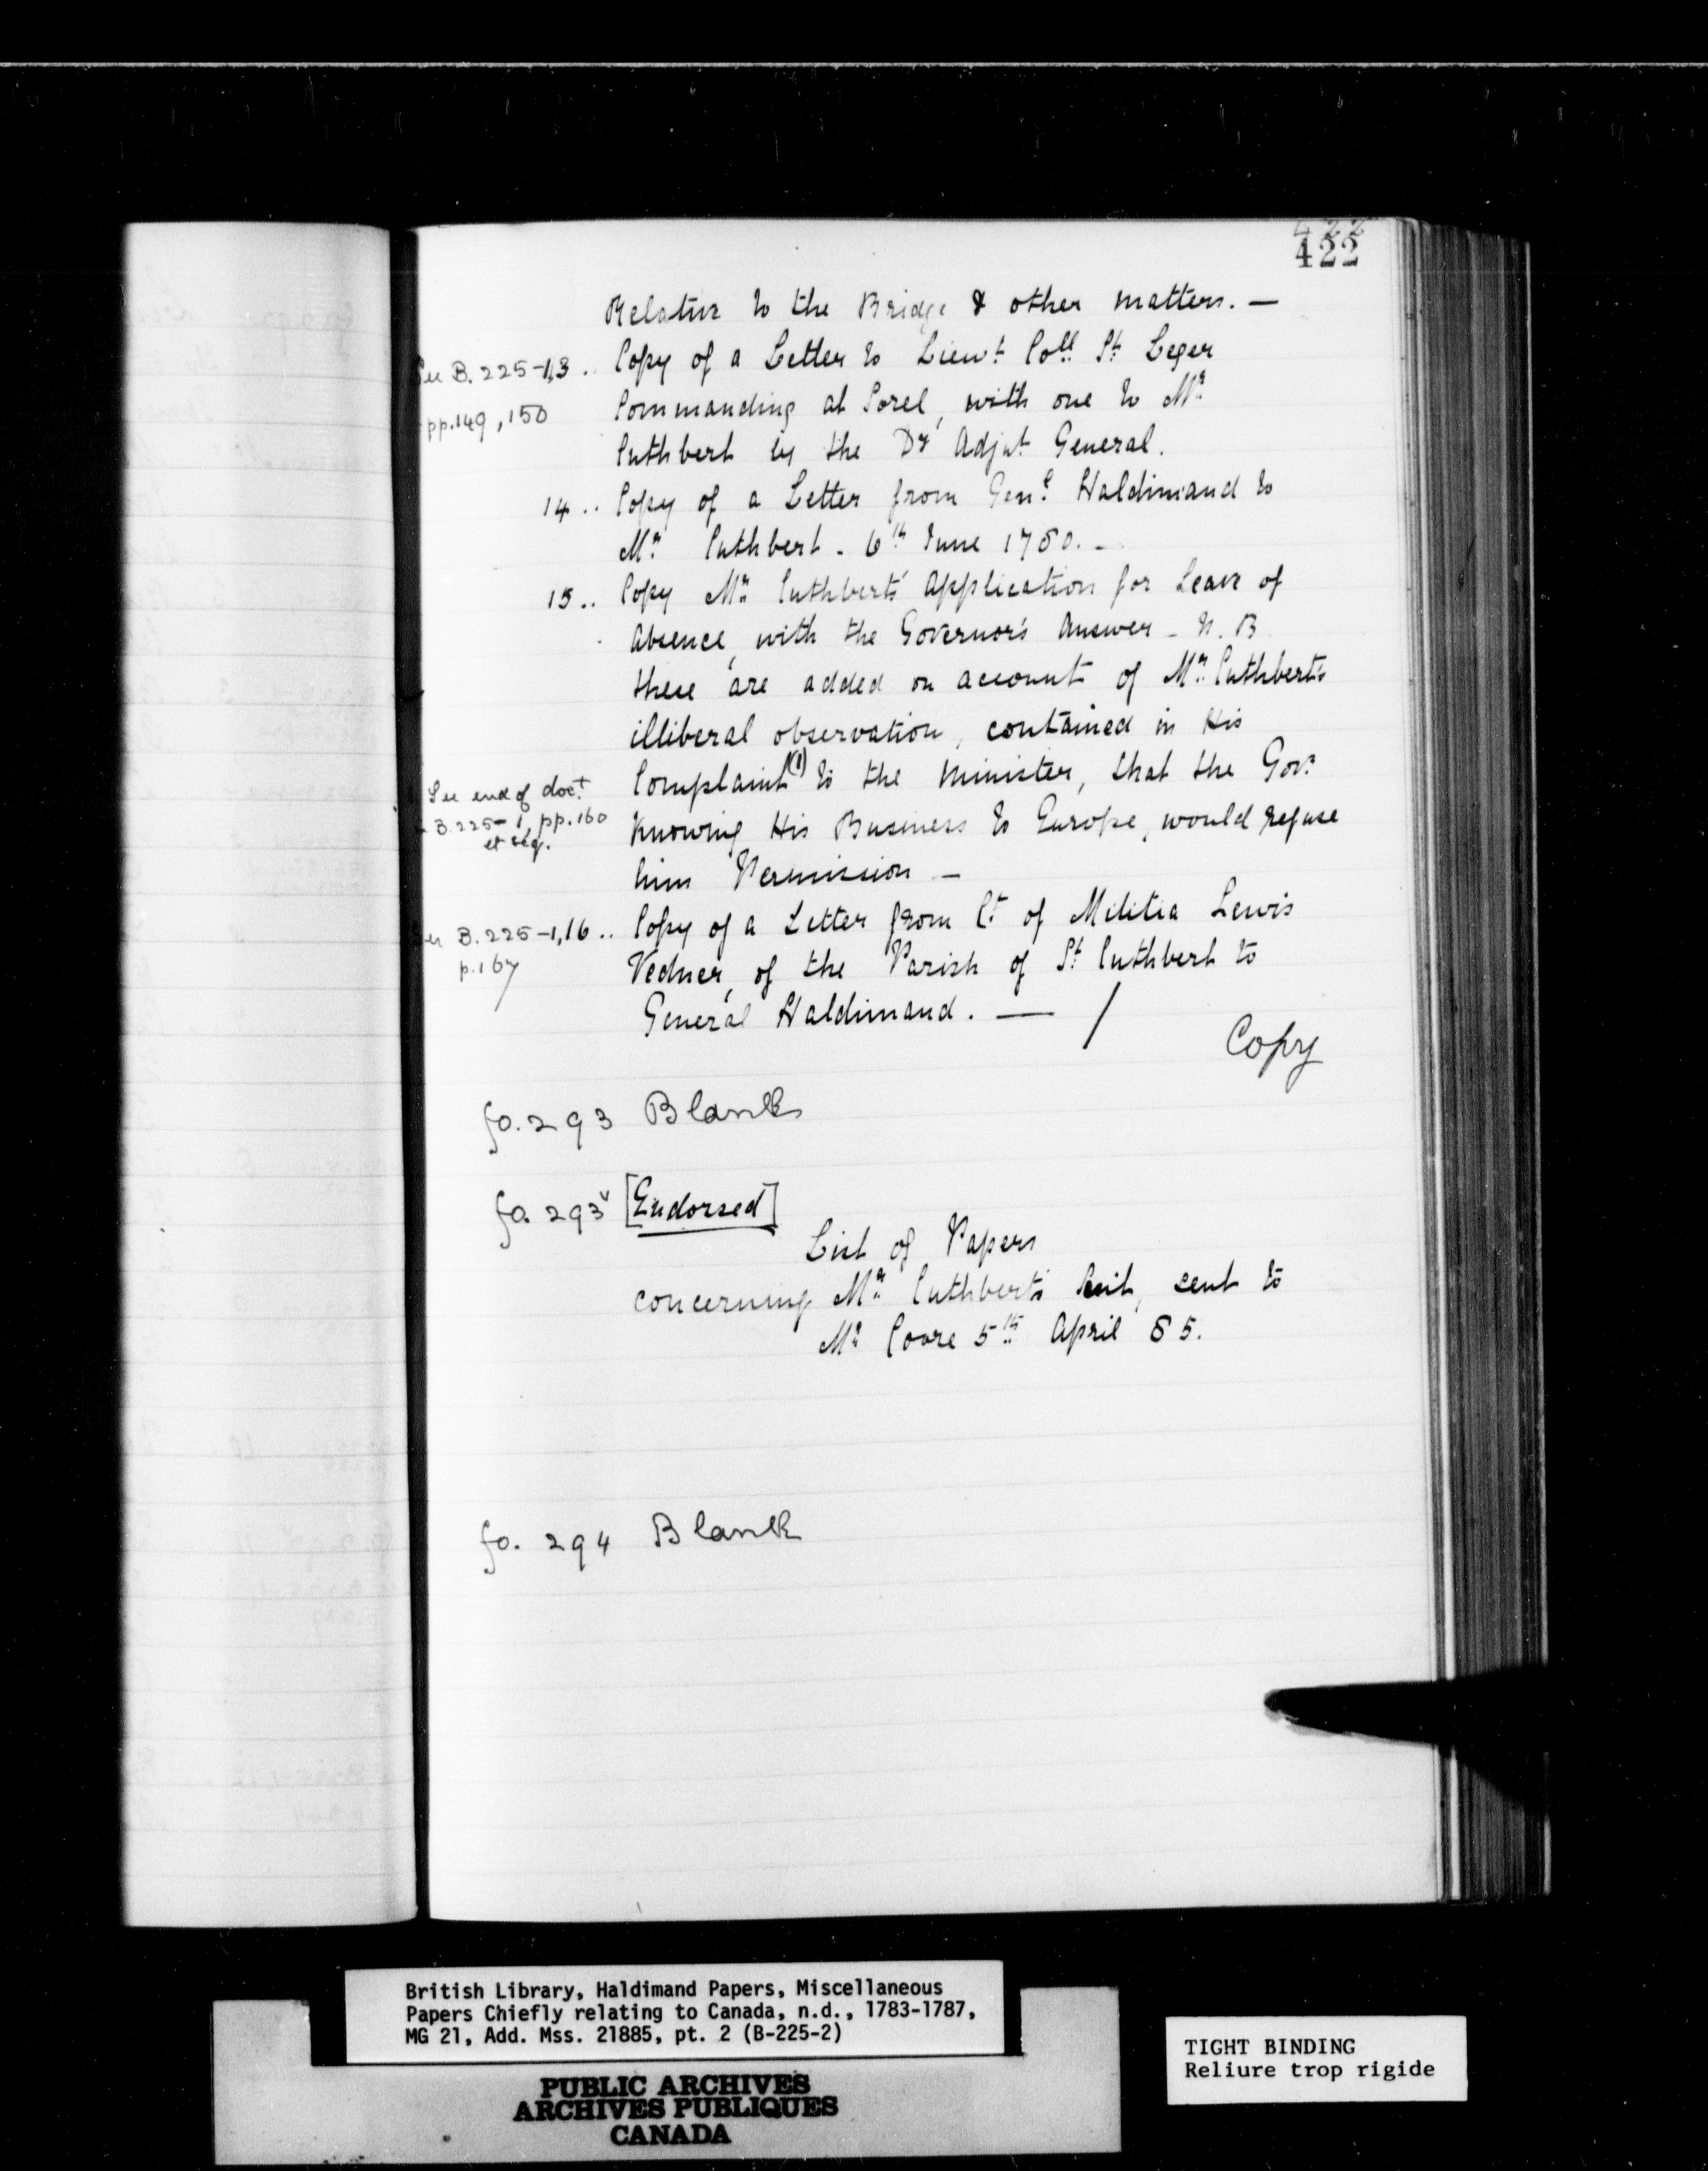 422
422
Relative to the Bridge & other matters. —
See B. 225-1, 13 .. Copy of a Letter to Lieut Coll. St Leger
pp. 149, 150 Commanding at Sorel, with one to Mr.
Cuthbert by the Dy Adjut General.
14 .. Copy of a Letter from Genl Haldimand to
Mr. Cuthbert - 6th June 1780. -
15 .. Copy Mr. Cuthbert's Application for Leave of
Absence, with the Governor's Answer - N. B
these are added on account of Mr. Cuthbert's
illiberal observation, contained in His
See end of doct. Complaint (1) to the Minister, that the Govr.
B. 225-1, pp. 160 Knowing His Business to Europe, would refuse
et seq. him Permission —
See B. 225-1, 16 .. Copy of a Letter from Ct of Militia Lewis
p. 167 of the Parish of St Cuthbert to
General Haldimand. — /
Copy
fo. 293 Blank
fo. 293v [Endorsed]
List of Papers
concerning Mr. Cuthbert's Suit, sent to
Mr Coore 5th April 85.
fo. 294 Blank
British Library, Haldimand Papers, Miscellaneous
Papers Chiefly relating to Canada, n.d., 1783-1787,
MG 21, Add. Mss. 21885, pt. 2 (B-225-2)
PUBLIC ARCHIVES
ARCHIVES PUBLIQUES
CANADA
TIGHT BINDING
Reliure trop rigide